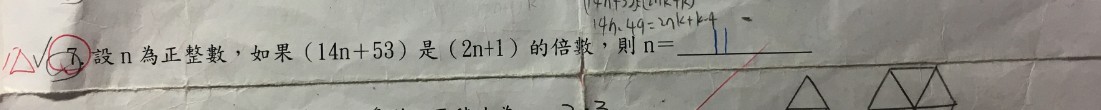 14n+53=(2nk+k)
14n-49=2nk+k-4
7. 設 n 為正整數，如果（14n＋53）是（2n+1）的倍數，則 n＝ 11